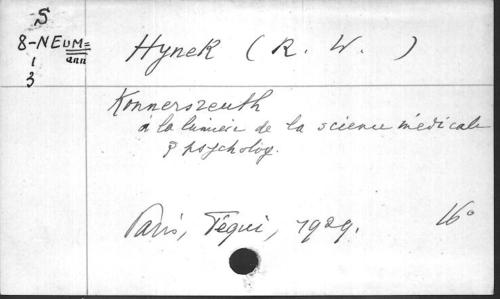 S
8-NEUM=
ann
1
3
Hynek (R. W. )
Konnersreuth
à la lumière de la science médicale
& psycholog.
Paris, Téqui, 1929. 16°